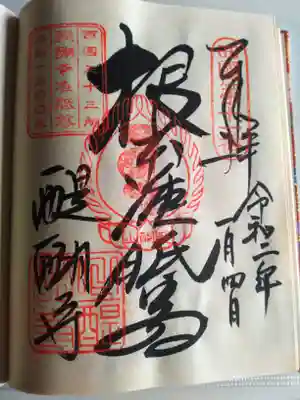 奉拝
令和二年
一月四日
根本准胝尊
醍醐寺
西国三十三所